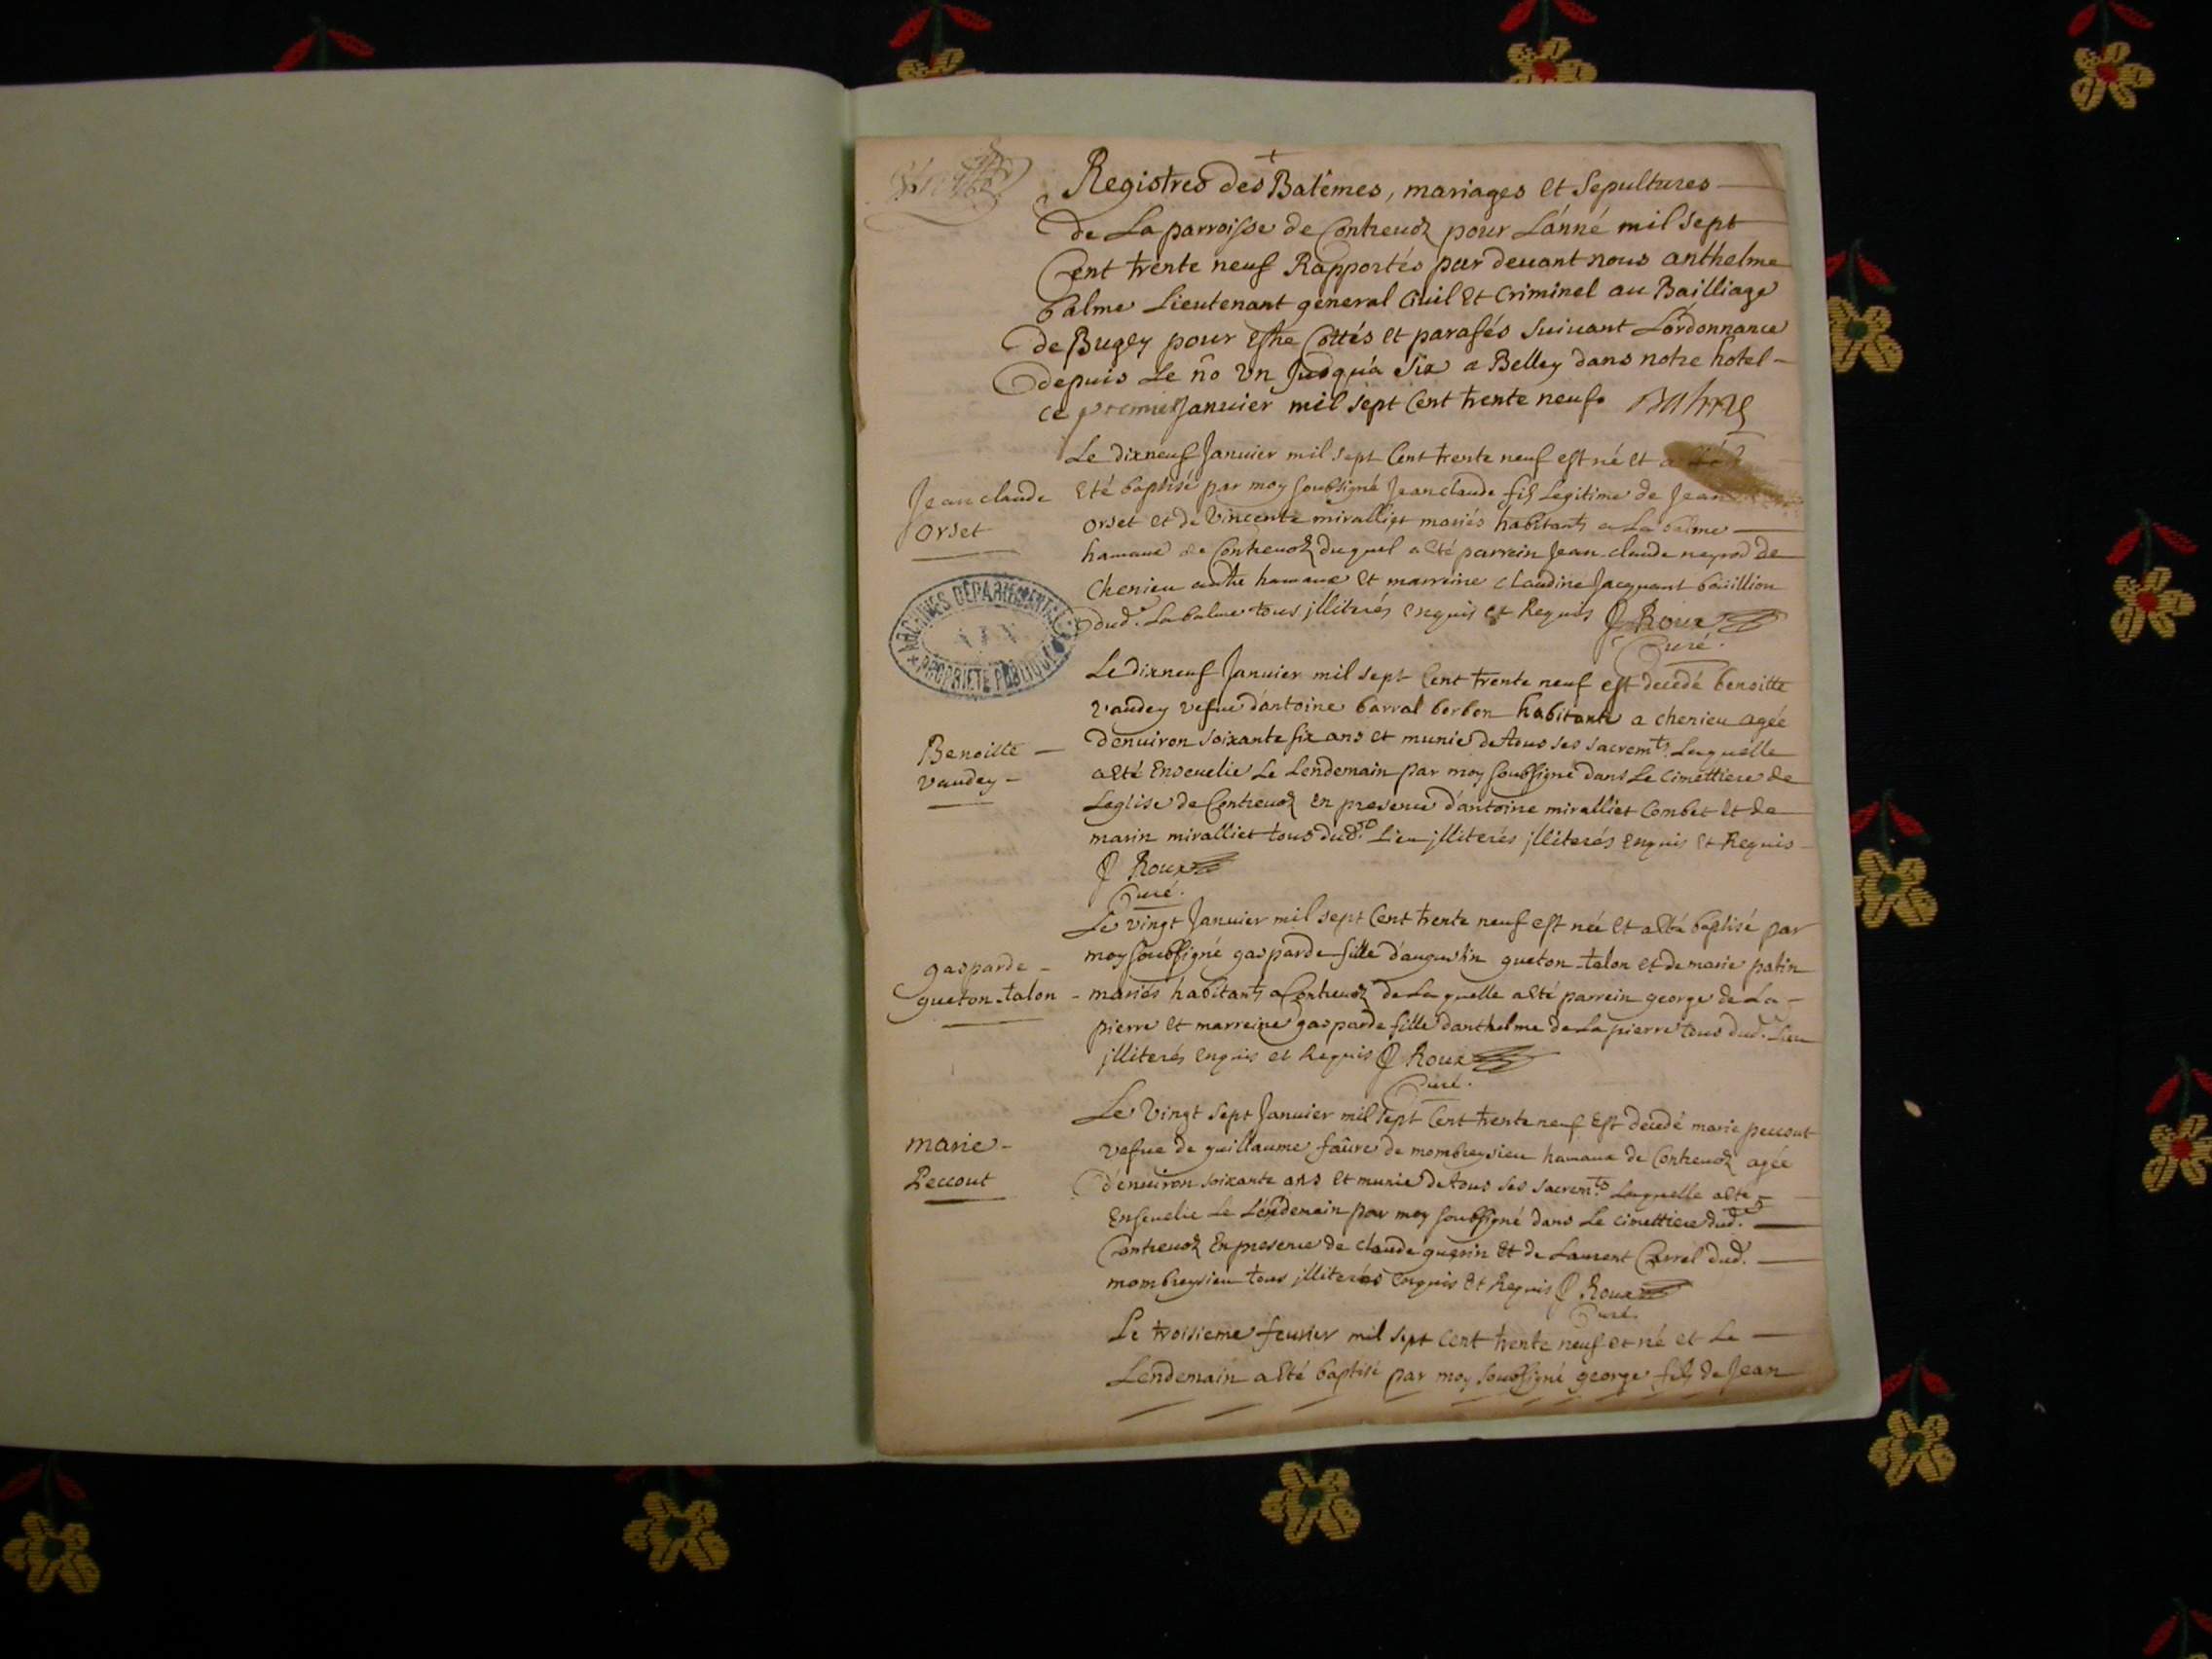 Registres des Batêmes, mariages et Sepultures
de La parroisse de Contrevoz pour L'anné mil sept
Cent trente neuf Rapportés par devant nous anthelme
balme Lieutenant general Civil et Criminel au Bailliage
de Bugey pour estre Cottés et parafés suivant L'ordonnance
depuis Le no un Jusqu'a six a Belley dans notre hotel
ce premier Janvier mil sept Cent trente neuf. Balme
Le dixneuf Janvier mil sept Cent trente neuf est né et a
Jean claude
Orset
Eté baptisé par moy soubsigné Jean claude fils Legitime de Jean
orset et de Vincente miralliet mariés habitants a La balme
hamaux de Contrevoz duquel a eté parrein Jean-claude neyrod de
Chenieu autre hamaux et marreine claudine Jacquant
dud. La balme tous jlliterés enquis et Requis J Roux
Curé.
ARCHIVES DÉPARTEMENTALES
AIN
PROPRIÉTÉ PUBLIQUE
Le dixneuf Janvier mil sept Cent trente neuf est decedé benoitte
Benoitte
vaudey
vaudey vefve d'antoine barral borbon habitante a chenieu agée
d'environ soixante six ans et munie de tous ses sacremts. Laquelle
a eté Ensevelie Le Lendemain par moy soubsigné dans Le cimettiere de
Leglise de Contrevoz en presence d'antoine miralliet Combet et de
marin miralliet tous dud. Lieu jlliterés jlliterés enquis et Requis
J Roux
Curé.
Le vingt Janvier mil sept Cent trente neuf est née et a eté baptisé par
gasparde
gueton-talon
moy soubsigné gasparde fille d'augustin gueton-talon et de marie patin
mariés habitants a Contrevoz de Laquelle a eté parrein george de La
pierre et marreine gasparde fille d'anthelme de La pierre tous dud. Lieu
jlliterés enquis et Requis J Roux
Curé.
Le vingt sept Janvier mil sept Cent trente neuf Est decedé marie peccout
marie
Peccout
vefve de guillaume faûre de mombreysieu hamaux de Contrevoz agée
d'environ soixante ans et munie de tous ses sacremts. Laquelle a eté
Ensevelie Le Lendemain par moy soubsigné dans Le cimettiere dud.
Contrevoz En presence de claude guerin et de Laurent Carrel dud.
mombreysieu tous jlliterés enquis Et Requis J Roux
Curé.
Le troisieme fevrier mil sept cent trente neuf et né et Le
Lendemain a eté baptisé par moy soubsigné george fils de Jean